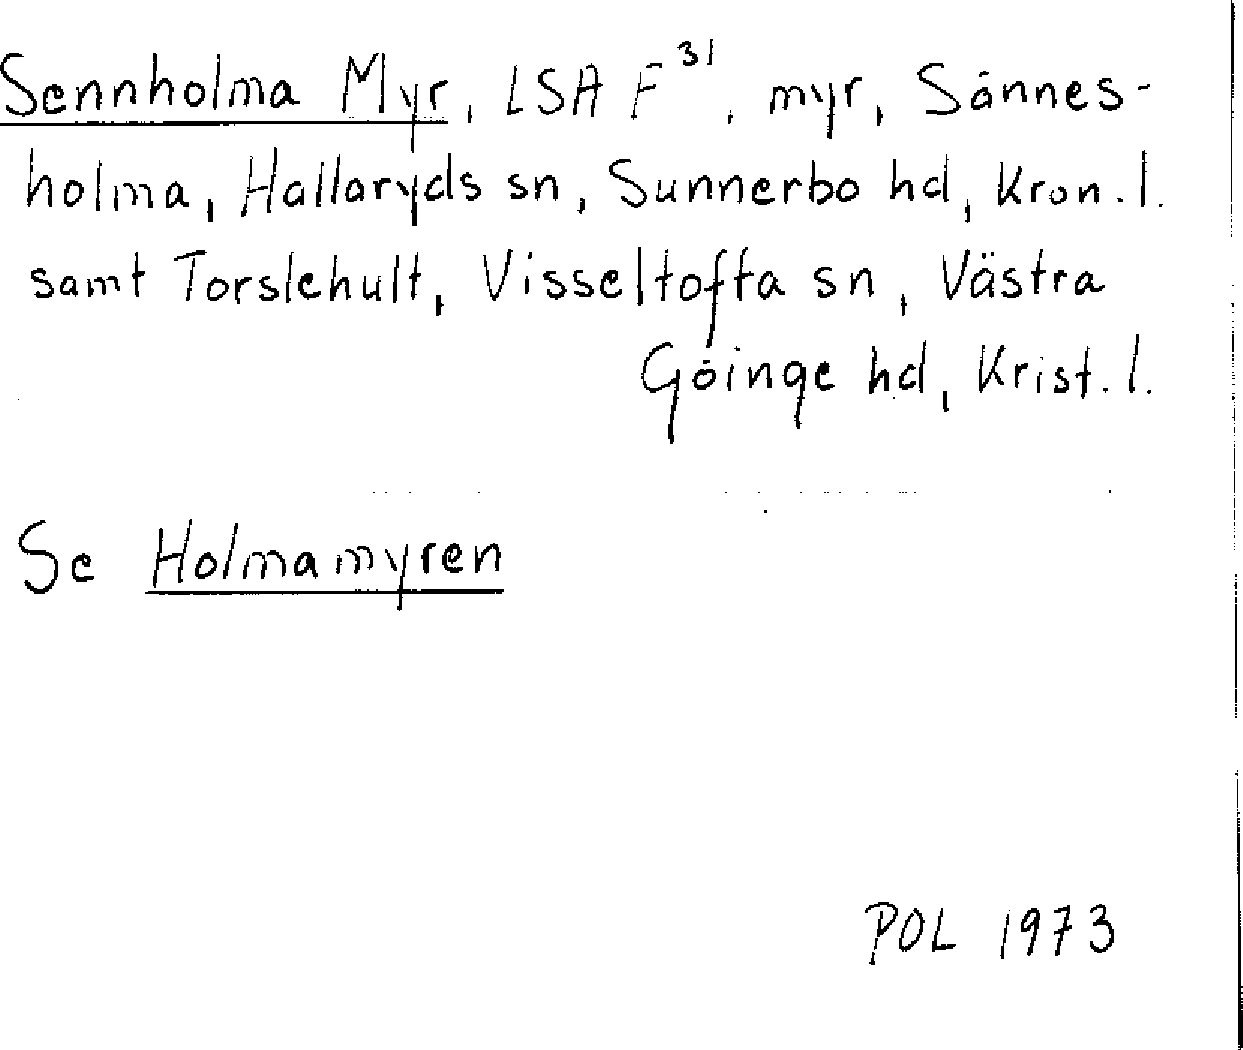 Sennholma Myr, LSA F 31, myr, Sönnes-
holma, Hallaryds sn, Sunnerbo hd, Kron. l.
samt Torslehult, Visseltofta sn, Västra
Göinge hd, Krist. l.
Se Holmamyren
POL 1973